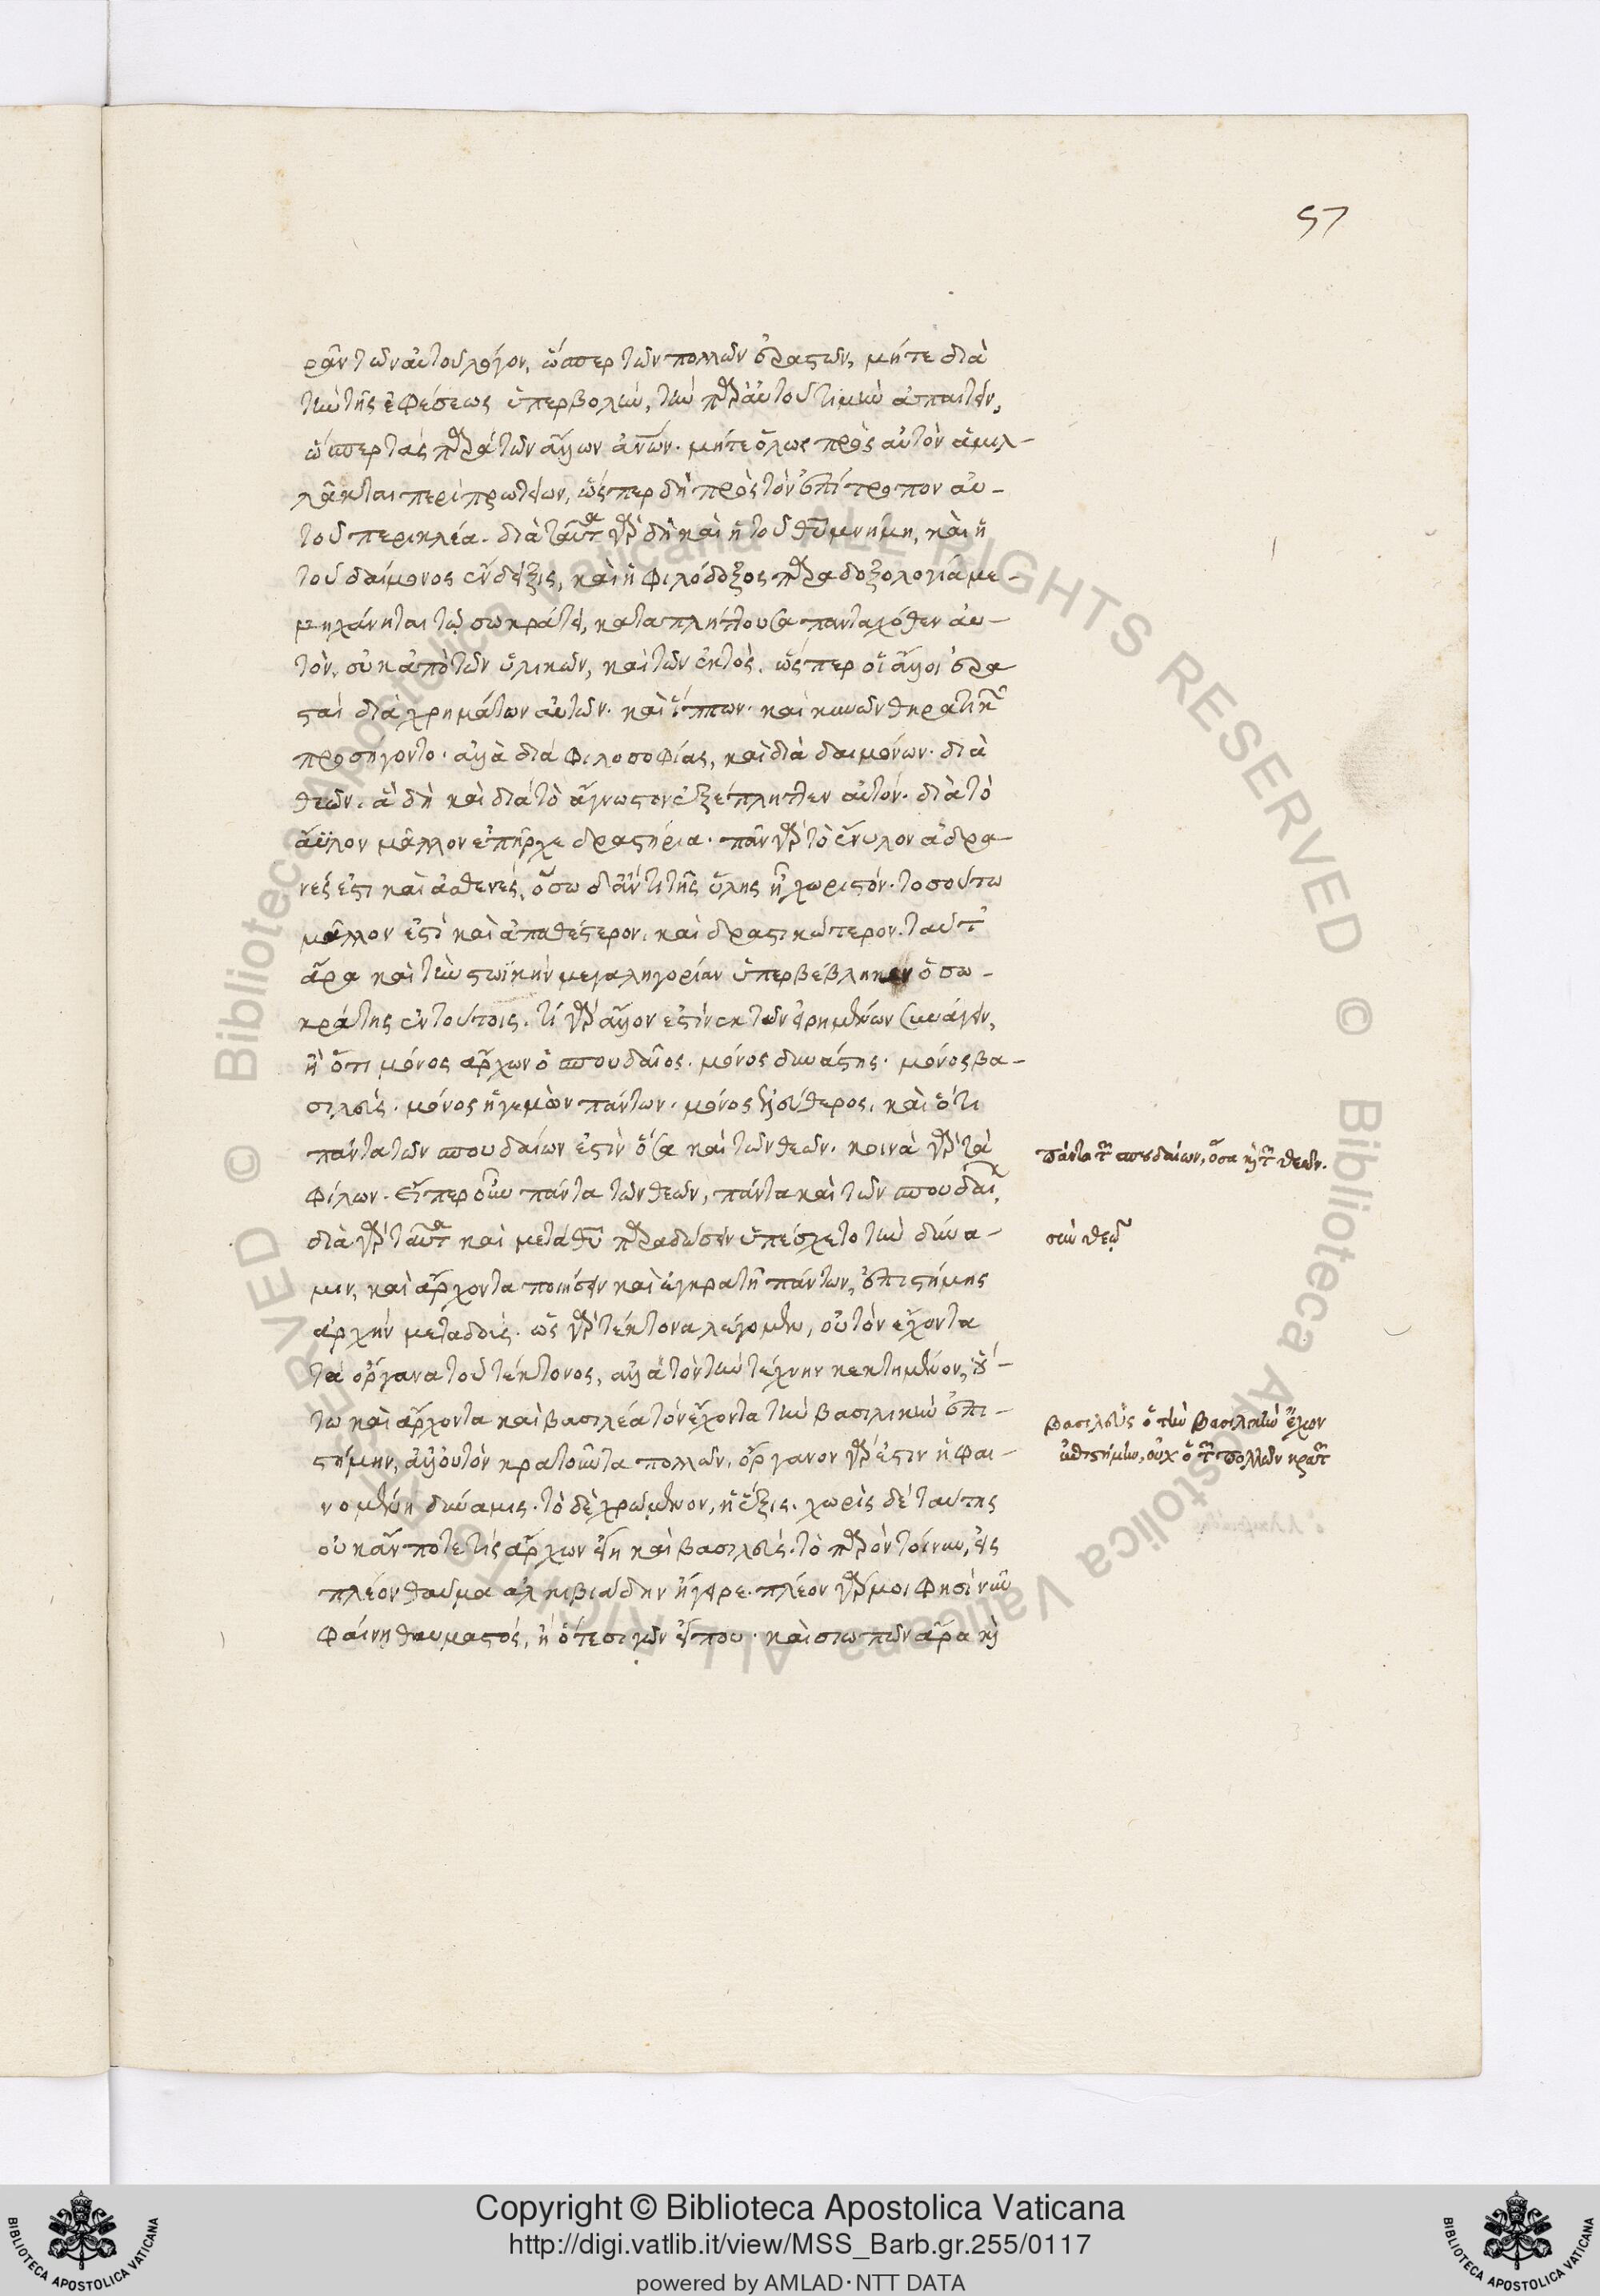 57
ρᾶν τῶν αὐτοῦ λόγον, ὥσπερ τῶν πολλῶν ἐραστῶν, μήτε διὰ
τὴν τῆς ἐφέσεως ὑπερβολὴν, τὴν παρ' αὐτοῦ τιμὴν ἀπαιτεῖν,
ὥσπερ τὰς παρὰ τῶν ἄλλων ἀνων. μήτε ὅλως πρὸς αὐτὸν ἁμιλ-
λᾶσται περὶ πρωτείων, ὥσπερ δὴ πρὸς τὸν ἐπίτροπον αὐ-
τοῦ περικλέα. διὰ ταῦτα γὰρ δὴ καὶ ἡ τοῦ θῦ μνήμη, καὶ ἡ
τοῦ δαίμονος ἔνδειξις, καὶ ἡ φιλόδοξος παραδοξολογία με-
μηχάνηται τῷ σωκράτει, καταπλήττουσα πανταχόθεν αὐ-
τὸν, οὐκ ἀπὸ τῶν ὑλικῶν, καὶ τῶν ἐκτὸς. ὥσπερ οἱ ἄλλοι ἐρα
σταὶ διὰ χρημάτων αὐτῶν. καὶ ἵππων. καὶ κυνῶν θηρατικ
προσήγοντο. ἀλλὰ διὰ φιλοσοφίας, καὶ διὰ δαιμόνων. διὰ
θεῶν. ἃ δὴ καὶ διὰ τὸ ἄγνωστον ἐξέπληττεν αὐτόν. διὰ τὸ
ἄϋλον μᾶλλον ὑπῆρχε δραστήρια. πᾶν γὰρ τὸ ἔνυλον ἀδρα
νές ἐστι καὶ ἀσθενές, ὅσω δ' ἄν τι τῆς ὕλης ᾖ χωριστόν. τοσούτω
μᾶλλον ἐστὶ καὶ ἀπαθέστερον. καὶ δραστικώτερον. ταῦτ'
ἄρα καὶ τὴν στωϊκὴν μεγαληγορίαν ὑπερβέβληκεν ὁ σω-
κράτης ἐν τούτοις. τί γὰρ ἄλλον ἐστὶν ἐκ τῶν εἰρημένων συνάγειν,
ἢ ὅτι μόνος ἄρχων ὁ σπουδαῖος. μόνος δυνάστης. μόνος βα-
σιλεὺς. μόνος ἡγεμὼν πάντων. μόνος ἐλεύθερος. καὶ ὅτι
πάντα τῶν σπουδαίων ἐστὶν ὅσα καὶ τῶν θεῶν. κοινὰ γὰρ τὰ
φίλων. Εἴπερ οὖν πάντα τῶν θεῶν, πάντα καὶ τῶν σπουδαί.
διὰ γὰρ ταῦτα καὶ μετὰ θῦ παραδώσειν ὑπέσχετο τὴν δύνα-
μιν, καὶ ἄρχοντα ποιήσειν καὶ ἐγκρατῆ πάντων, ἐπιστήμης
ἀρχὴν μεταδοὺς. ὡς γὰρ τέκτονα λέγομεν, οὐ τὸν ἔχοντα
τὰ ὄργανα τοῦ τέκτονος, ἀλλὰ τὸν τὴν τέχνην κεκτημένον, οὕ-
τω καὶ ἄρχοντα καὶ βασιλέα τὸν ἔχοντα τὴν βασιλικὴν ἐπι-
στήμην, ἀλλ' οὐ τὸν κρατοῦντα πολλῶν. ὄργανον γὰρ ἐστιν ἡ φαι-
νομένη δύναμις. τὸ δὲ χρώμενον, ἡ ἕξις. χωρὶς δὲ ταύτης
οὐκ ἄν ποτε τίς ἄρχων εἴη καὶ βασιλεὺς. τὸ παρὸν τοίνυν, εἰς
πλέον θαῦμα ἀλκιβιάδην ἤγειρε. πλέον γὰρ μοι φησὶ νῦν
φαίνῃ θαυμαστὸς, ἢ ὅτε σιγῶν εἵπου. καὶ σιωπῶν ἄρα καὶ
πάντα τῶν σπουδαίων, ὅσα καὶ τῶν θεῶν.
σὺν θεῷ
βασιλεὺς ὁ τὴν βασιλικὴν ἔχων
ἐπιστήμην, οὐχ ὁ τῶν πολλῶν κρατῶν
Copyright © Biblioteca Apostolica Vaticana
http://digi.vatlib.it/view/MSS_Barb.gr.255/0117
powered by AMLAD·NTT DATA
BIBLIOTECA APOSTOLICA VATICANA
BIBLIOTECA APOSTOLICA VATICANA